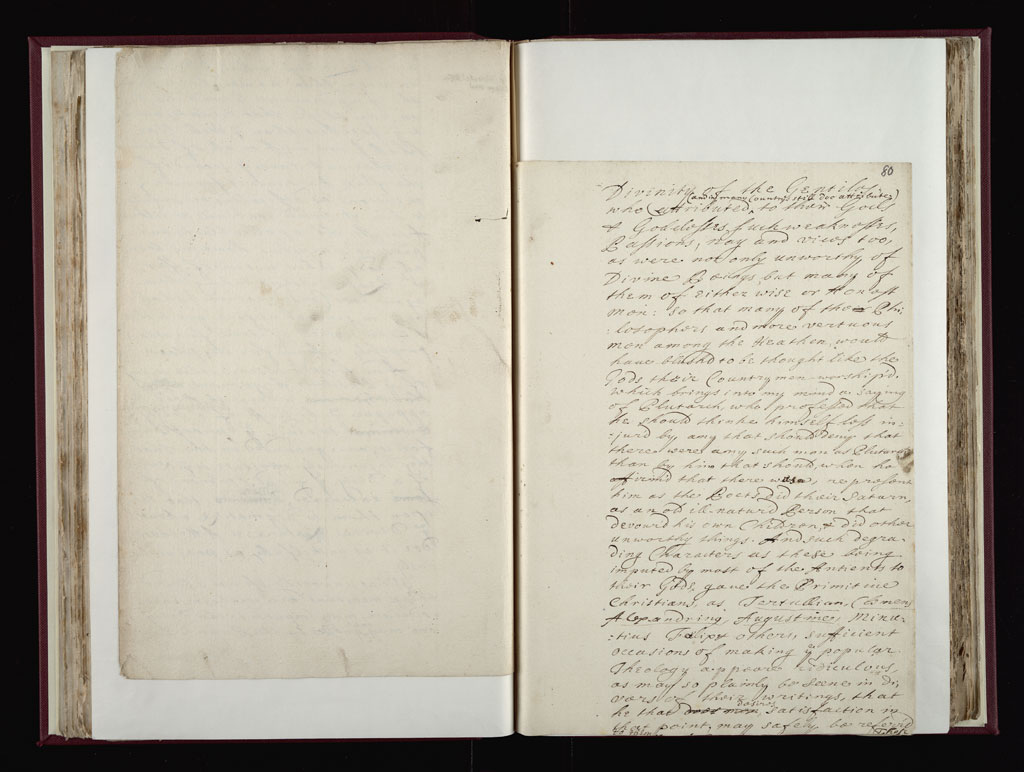 80
Divinity of the Gentiles,
(and in many Countrys still doe attribute)
who attributed to their Gods
& Goddesses, such weaknesses,
Passions, nay and vices too,
as were not only unworthy of
Divine Beings, but many of
them of either wise or honest
men: so that many of the Phi-
:losophers and more vertuous
men among the Heathen, would
have blushd to be thought like the
Gods their Country men worship'd.
Which brings into my mind a saying
of Plutarch, who professd that
He should thinke himself less in-
:jur'd by any that should deny that
there were any such man as Plutarch
than by him that should, when he
affirmd that there was, represent
him as the Poets did their Saturn,
as an od ill-natur'd Person that
devourd his own Children, & did other
unworthy things. And such degra-
ding Characters as these being
imputed by most of the Antients to
their Gods, gave the Primitive
Christians, as Tertullian, Clemens
Alexandrinus, Augustine, Minu-
:tius Felix & others, sufficient
occasions of making ye popular
Theology appeare ridiculous,
as may so plainly be seene in di-
vers of their writings, that
desires
he that does men, satisfaction in
that point, may safely be referrd